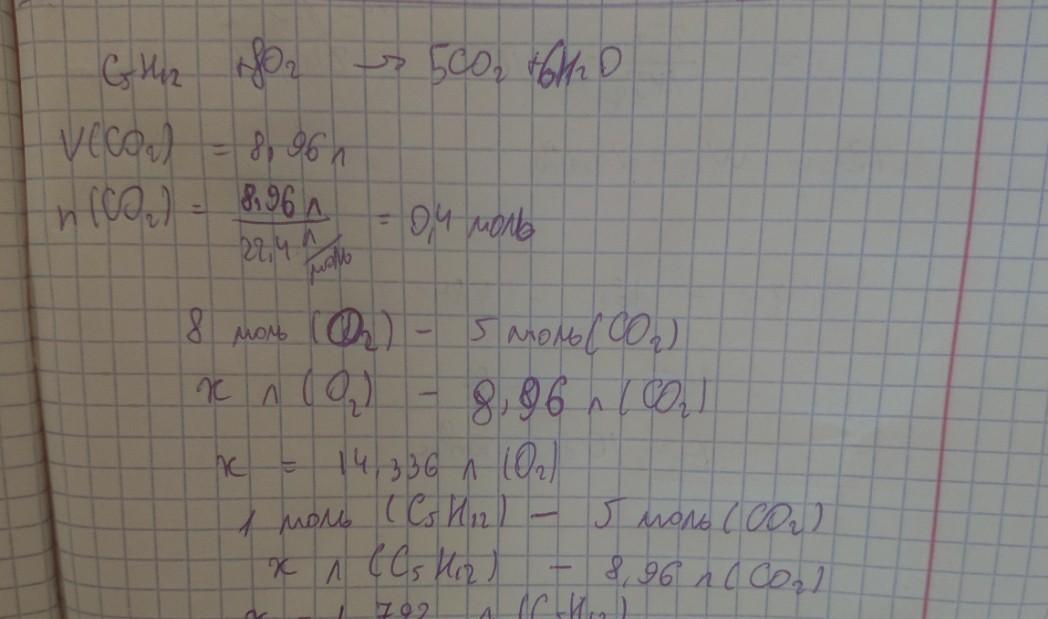 C5H12 + 8O2 → 5CO2 + 6H2O
V(CO2) = 8,96 л
n(CO2) = 8,96 л / 22,4 л/моль = 0,4 моль
8 моль (O2) – 5 моль (CO2)
x л (O2) – 8,96 л (CO2)
x = 14,336 л (O2)
1 моль (C5H12) – 5 моль (CO2)
x л (C5H12) – 8,96 л (CO2)
x = 1,792 л (C5H12)